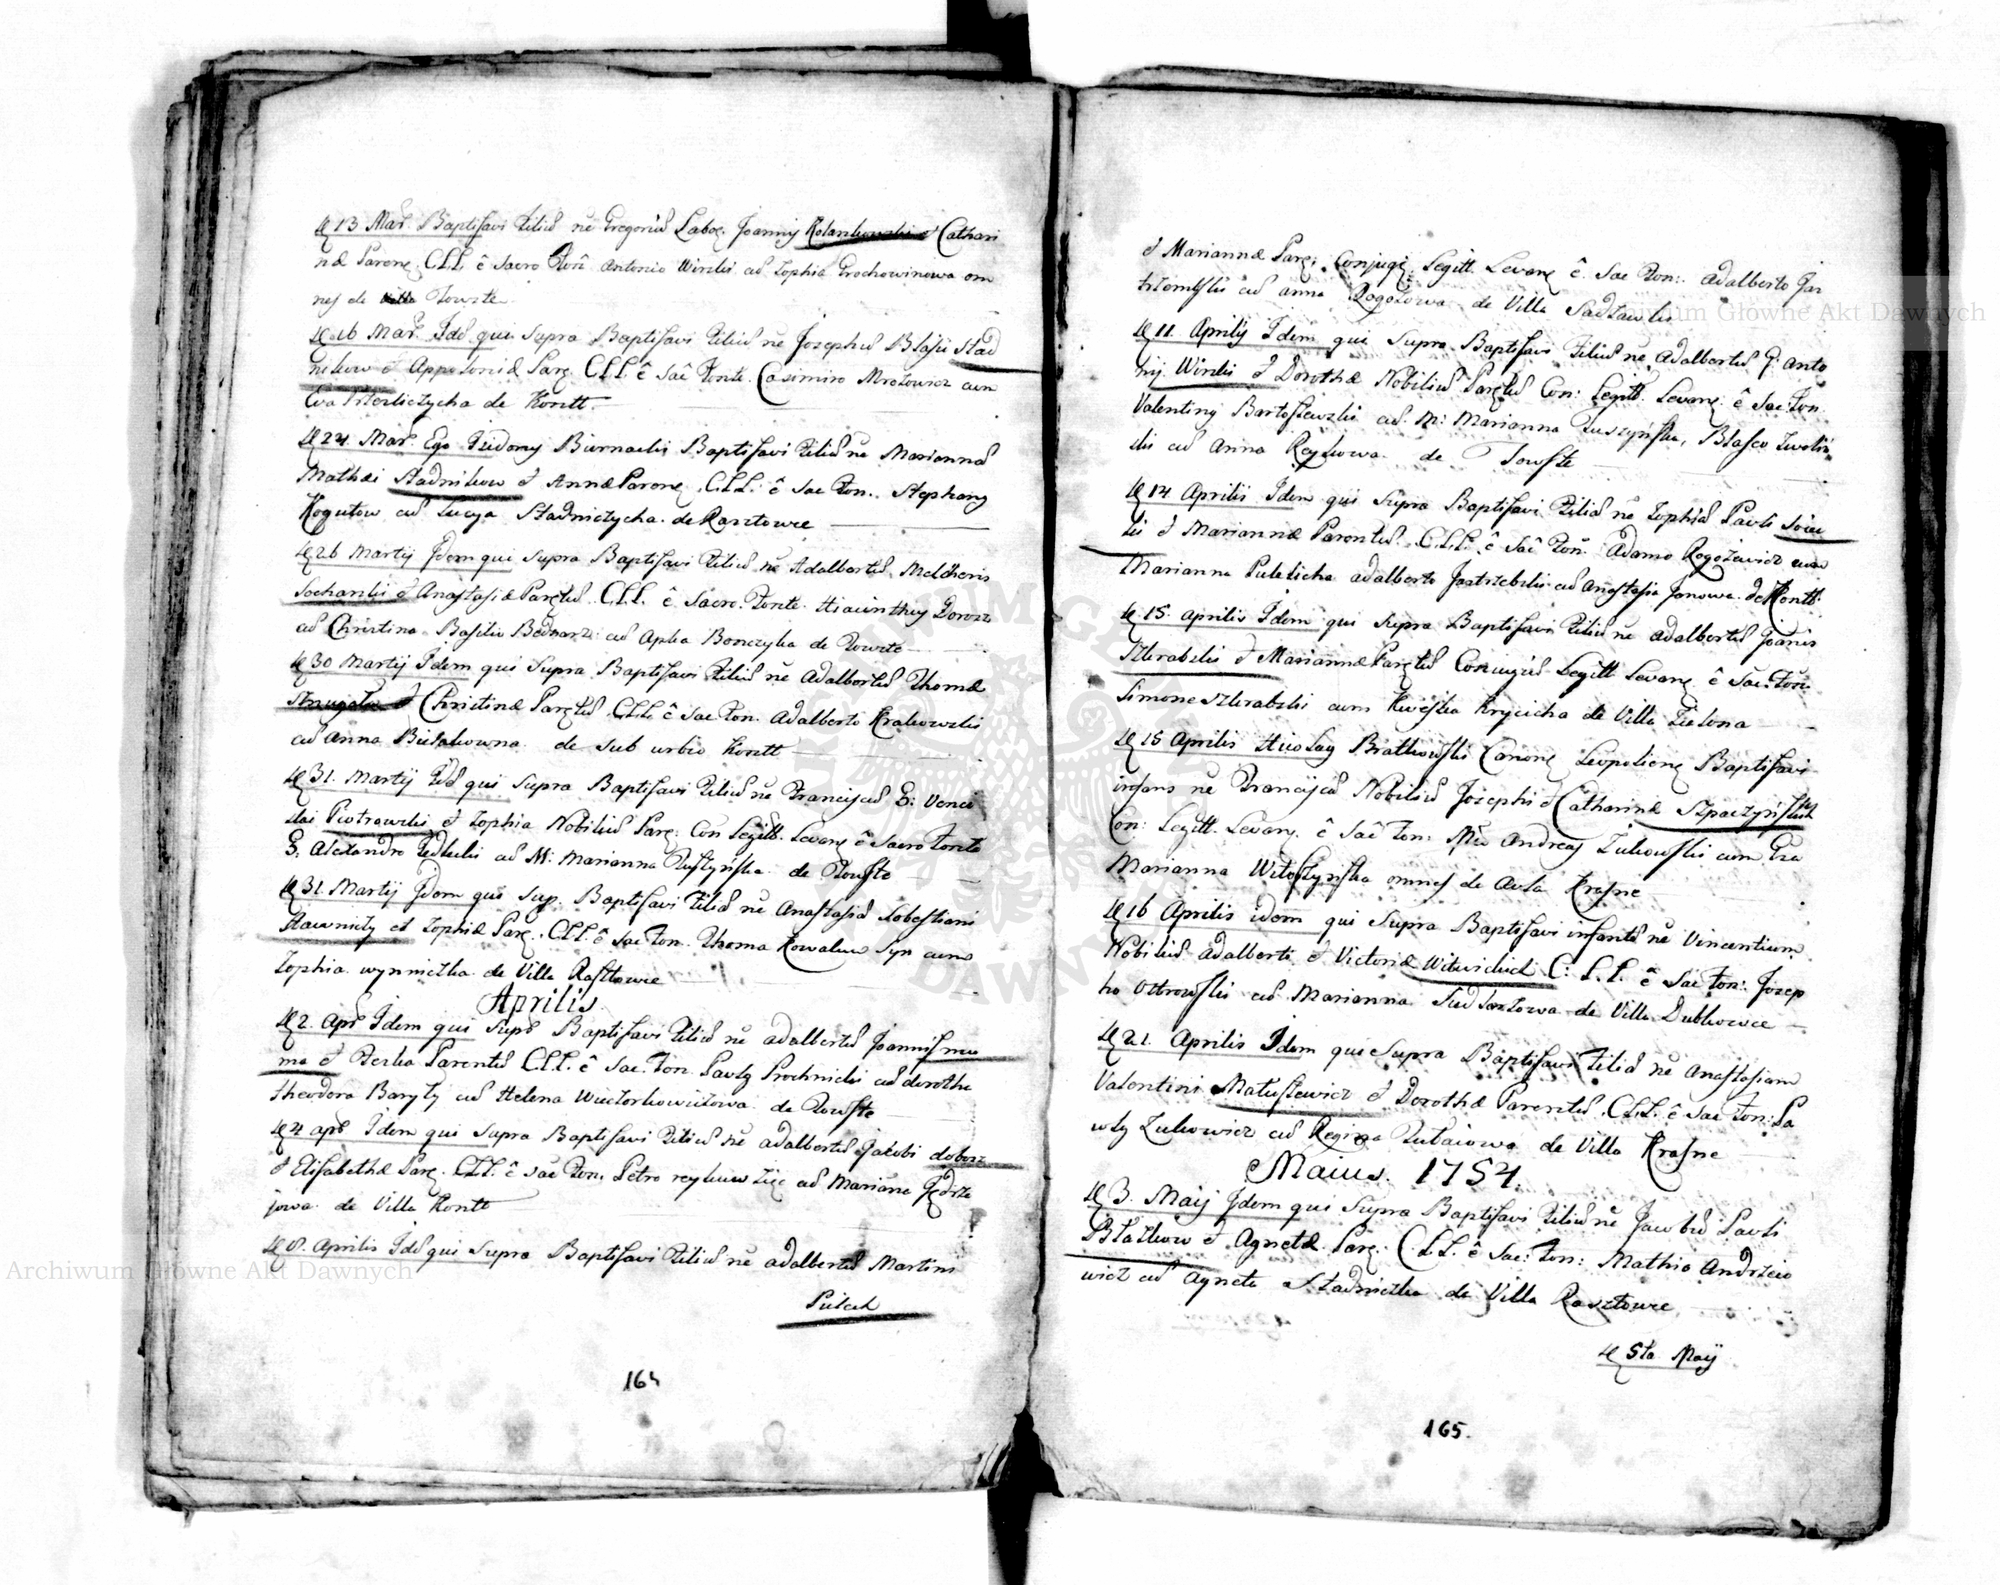 13 Mar. Baptisavi Filiū nē Gregoriū Laboe. Joannis Kolankowski et Cathari
næ Paren. C.L.L. ê Sacro Fon. Antonio Wirski cū Zophia Grochowinowa om
nes de Villa Towste
16 Mar. Idē qui Supra Baptisavi Filiū nē Josephū Blasii Stad
nikow et Appoloniæ Par. C.L.L. ê Saê Fonte. Casimiro Mrozowicz cum
Eva de Kontt.
24 Mar. Ego Baptisavi Filiā nē Mariannā
Mathæi Stadnikow et Annæ Paren. C.L.L. ê Sac Fon. Stephano
Kogutow cū Lucya Stadniczycha de Rasztowce
26 Martij Idem qui Supra Baptisavi Filiū nē Adalbertū Melcheris
Sochanski et Anastasiæ Parētū C.L.L. ê Sacro. Fonte. Hiacinthus Dorosz
cū Christina Basilio Bednarz cū Bonczyka de Towste
30 Martij Idem qui Supra Baptisavi Filiū nē Adalbertū Thomæ
et Christinæ Parētū C.L.L. ê Sac Fon. Adalberto Krakowski
cū Anna de Sub urbio Kontt
31. Martij Idē qui Supra Baptisavi Filiū nē Franciscū G: Vence
slai Piotrowski et Zophia Nobiliū Par: Con Legitt. Levan ê Sacro Fonte
G. Alexandro cū M: Marianna de Towste
31 Martij Idem qui Sup. Baptisavi Filiā nē Anastasiā Sobestiani
Stawnizy et Zophiæ Par. C.L.L. ê Sac Fon. Thoma Kowalow Syn cum
Zophia wynnizka de Villa Rasztowce
Aprilis
2. Apr Idem qui Supr Baptisavi Filiū nē adalbertū Joannis
ma et Parentū C.L.L. ê Sac. Fon. Pavlo Prochnicki cū dorothe
theodoro Baryly cū Helena de Towste
4 apr Idem qui Supra Baptisavi Filiū nē adalbertū Jakobi dobosz
et Elisabethæ Par. C.L.L. ê Sac Fon. Petro cū Mariana Jędrze
jowa de Villa Kontt
8. Aprilis Idē qui Supra Baptisavi Filiū nē adalbertū Martini
Pulch
164
et Mariannæ Par: Conjug: Legitt. Levan ê Sac Fon: Adalberto Jas
cū anna Rogozowa de Villa Sadzawki
11 Aprilij Idem qui Supra Baptisavi Filiū nē Adalbertū G: Anto
nij Wirski et Dorothæ Nobiliū Parētū Con: Legitt. Levan: ê Sac: Fon
Valentino Bartoszewski cū M: Marianna Blasco
ski cū Anna de Towste
14 Aprilij Idem qui Supra Baptisavi Filiā nē Zophiā Pavli
ki et Mariannæ Parentū C.L.L. ê Saê Fon. Adamo Rogozewicz cum
Marianna Pulezicha adalberto Jastrzebski cū Anastasia Janowa de Kontt.
15. aprilis Idem qui Supra Baptisavi Filiū nē adalbertū Joānis
Szkrabski et Mariannæ Parētū Coniugiū Legitt Levan ê Sac. Fon.
Simone Szkrabski cum Krycicha de Villa Zielona
15 Aprilis Nicolaus Bratkowski Canon Leopolien Baptisavi
infans nē Franciscū Nobiliū Josephi et Catharinæ Szpaczynskich
Con: Legitt. Levan. ê Saê Fon: Andreas Zukowski cum Gra
Marianna Witoszynska omnes de Avla Krasne
16 Aprilis idem qui Supra Baptisavi infantē nē Vincentium
Nobiliū Adalberti et Victoriæ Witwickich C: L.L. ê Sac Fon: Josep
ho Ostrowski cū Marianna de Villa Dubkowce
21. Aprilis Idem qui Supra Baptisavi Filiā nē Anastasiam
Valentini Matusiewicz et Dorothæ Parentū C.L.L. ê Sac Fon: Pa
wly Zukowicz cū Regina de Villa Krasne
Maius. 1754.
3. Maij Idem qui Supra Baptisavi Filiū nē Jacobū Pavli
Blazkow et Agnetæ Par: C.L.L. ê Sac: Fon: Mathia Andrzeio
wicz cū Agneta Stadniczka de Villa Rasztowce
5ta Maij
165.
Archiwum Główne Akt Dawnych
Archiwum Główne Akt Dawnych